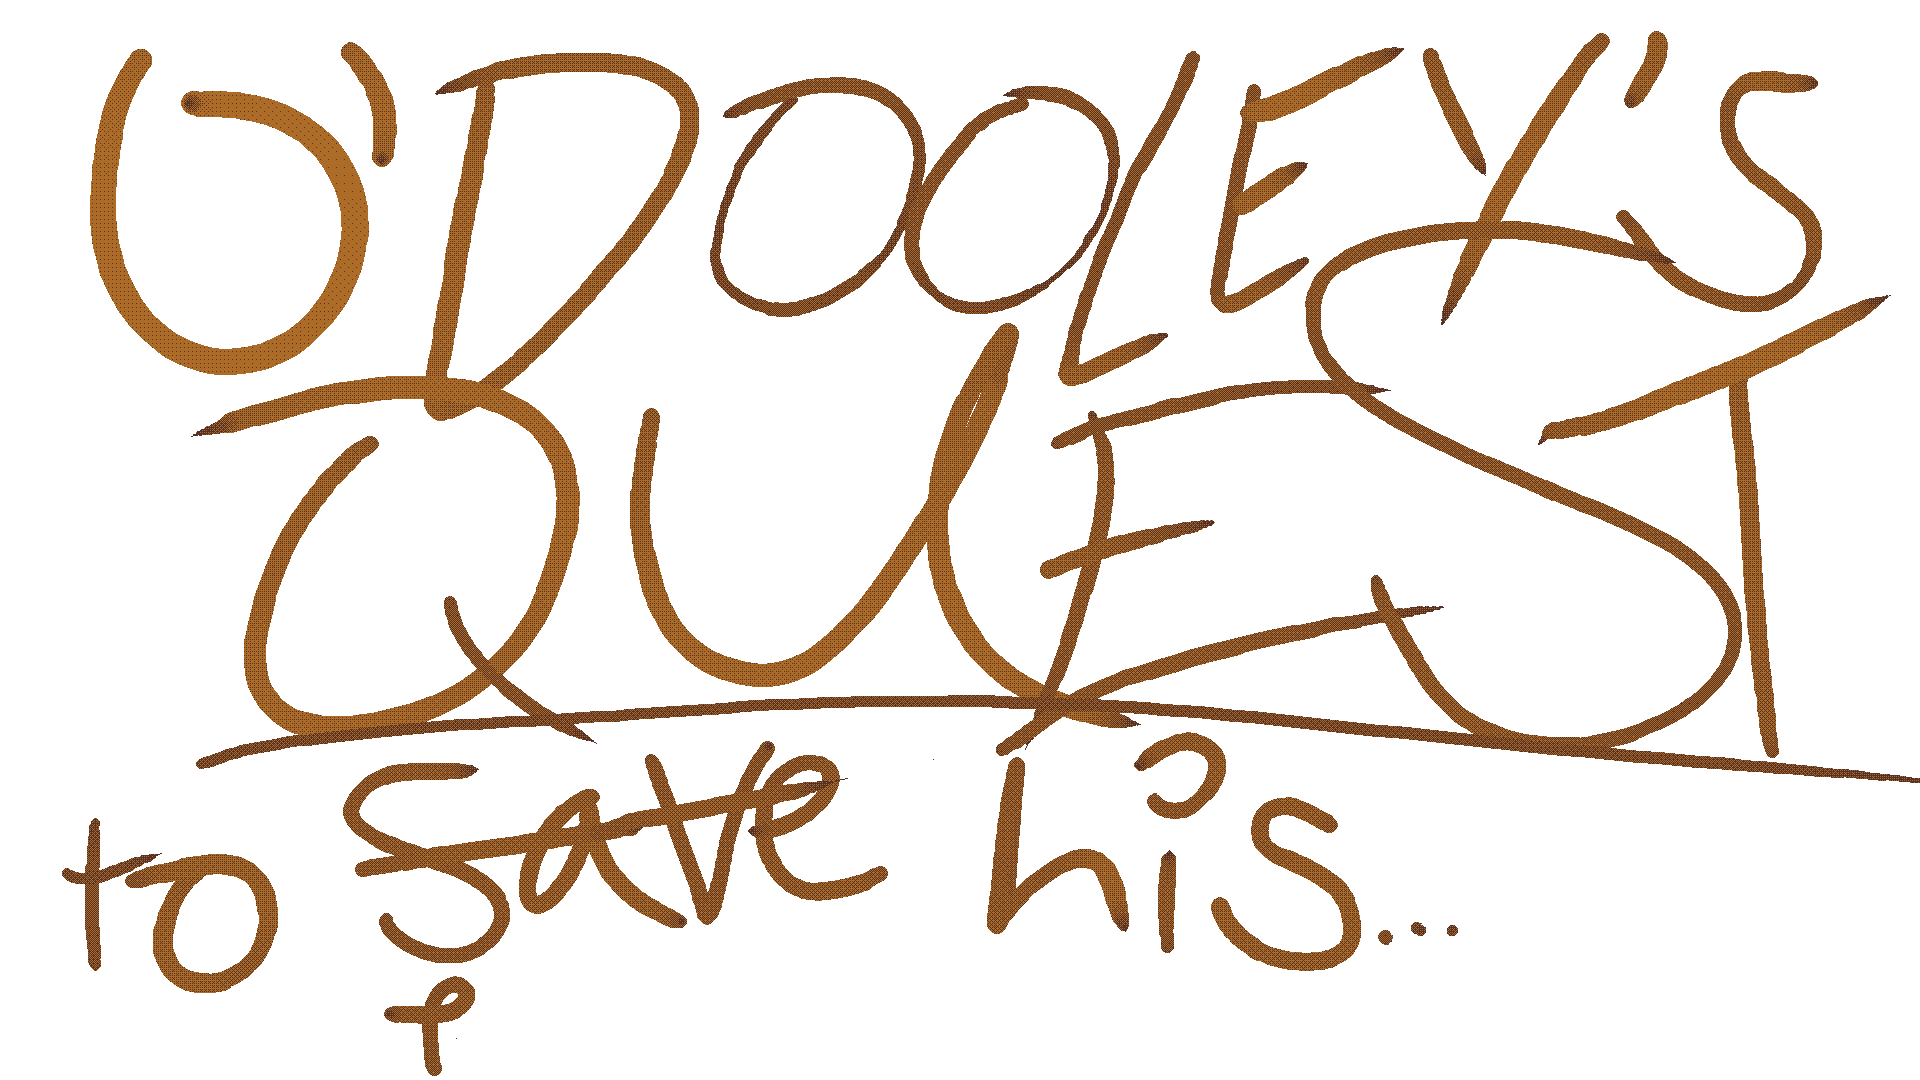 O'DOOLEY'S
QUEST
to save his...